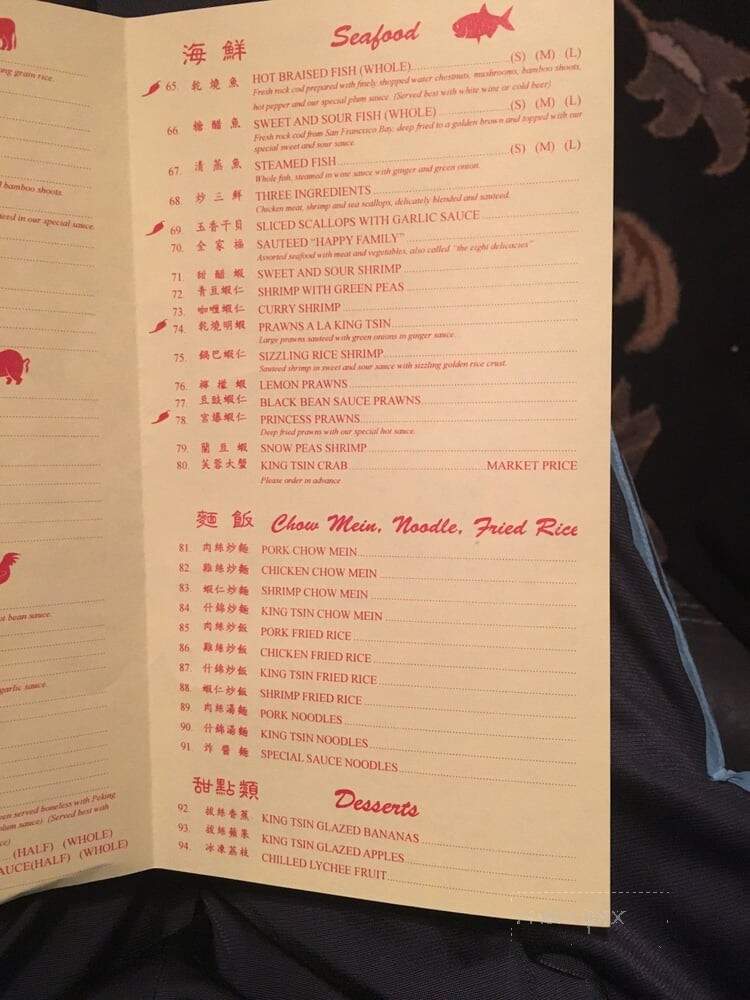 ong grain rice.
bamboo shoots.
ed in our special sauce.
ot bean sauce.
garlic sauce.
served boneless with Peking
plum sauce) (Served best with
(HALF) (WHOLE)
AUCE(HALF) (WHOLE)
海 鮮 Seafood
65. 乾燒魚 HOT BRAISED FISH (WHOLE) (S) (M) (L)
Fresh rock cod prepared with finely shopped water chestnuts, mushrooms, bamboo shoots,
hot pepper and our special plum sauce. (Served best with white wine or cold beer)
66. 糖醋魚 SWEET AND SOUR FISH (WHOLE) (S) (M) (L)
Fresh rock cod from San Francisco Bay, deep fried to a golden brown and topped with our
special sweet and sour sauce.
67. 清蒸魚 STEAMED FISH (S) (M) (L)
Whole fish, steamed in wine sauce with ginger and green onion.
68. 炒三鮮 THREE INGREDIENTS
Chicken meat, shrimp and sea scallops, delicately blended and sauteed.
69. 玉香干貝 SLICED SCALLOPS WITH GARLIC SAUCE
70. 全家福 SAUTEED “HAPPY FAMILY”
Assorted seafood with meat and vegetables, also called “the eight delicacies”
71 甜醋蝦 SWEET AND SOUR SHRIMP
72. 青豆蝦仁 SHRIMP WITH GREEN PEAS
73. 咖喱蝦仁 CURRY SHRIMP
74. 乾燒明蝦 PRAWNS A LA KING TSIN
Large prawns sauteed with green onions in ginger sauce.
75. 鍋巴蝦仁 SIZZLING RICE SHRIMP
Sauteed shrimp in sweet and sour sauce with sizzling golden rice crust.
76. 檸檬蝦 LEMON PRAWNS
77. 豆豉蝦仁 BLACK BEAN SAUCE PRAWNS
78. 宮爆蝦仁 PRINCESS PRAWNS
Deep fried prawns with our special hot sauce.
79. 蘭豆蝦 SNOW PEAS SHRIMP
80. 芙蓉大蟹 KING TSIN CRAB MARKET PRICE
Please order in advance
麵 飯 Chow Mein, Noodle, Fried Rice
81. 肉絲炒麵 PORK CHOW MEIN
82. 雞絲炒麵 CHICKEN CHOW MEIN
83. 蝦仁炒麵 SHRIMP CHOW MEIN
84. 什錦炒麵 KING TSIN CHOW MEIN
85. 肉絲炒飯 PORK FRIED RICE
86. 雞絲炒飯 CHICKEN FRIED RICE
87. 什錦炒飯 KING TSIN FRIED RICE
88. 蝦仁炒飯 SHRIMP FRIED RICE
89. 肉絲湯麵 PORK NOODLES
90. 什錦湯麵 KING TSIN NOODLES
91. 炸醬麵 SPECIAL SAUCE NOODLES
甜點類 Desserts
92. 拔絲香蕉 KING TSIN GLAZED BANANAS
93. 拔絲蘋果 KING TSIN GLAZED APPLES
94. 冰凍荔枝 CHILLED LYCHEE FRUIT